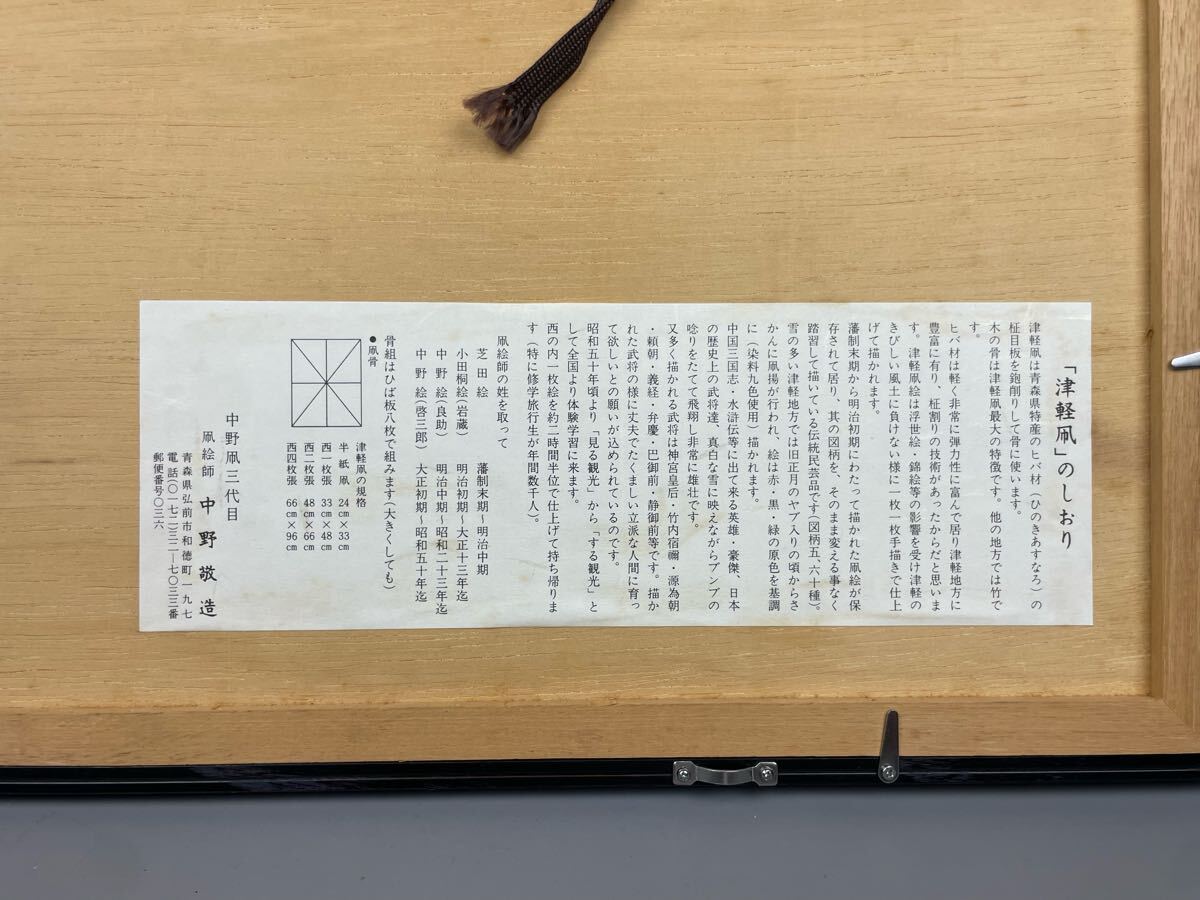 「津軽凧」のしおり
津軽凧は青森県特産のヒバ材（ひのきあすなろ）の
柾目板を鉋削りして骨に使います。
木の骨は津軽凧最大の特徴です。他の地方では竹で
す。
ヒバ材は軽く非常に弾力性に富んで居り津軽地方に
豊富に有り、柾割りの技術があったからだと思いま
す。津軽凧絵は浮世絵・錦絵等の影響を受け津軽の
きびしい風土に負けない様に一枚一枚手描きで仕上
げて描かれます。
藩制末期から明治初期にわたって描かれた凧絵が保
存されて居り、其の図柄を、そのまま変える事なく
踏習して描いている伝統民芸品です（図柄五、六十種）。
雪の多い津軽地方では旧正月のヤブ入りの頃からさ
かんに凧揚が行われ、絵は赤・黒・緑の原色を基調
に（染料九色使用）描かれます。
中国三国志・水滸伝等に出て来る英雄・豪傑、日本
の歴史上の武将達、真白な雪に映えながらブンブの
唸りをたてて飛翔し非常に雄壮です。
又多く描かれる武将は神宮皇后・竹内宿禰・源為朝
・頼朝・義経・弁慶・巴御前・静御前等です。描か
れた武将の様に丈夫でたくましい立派な人間に育っ
て欲しいとの願いが込められているのです。
昭和五十年頃より「見る観光」から「する観光」と
して全国より体験学習に来ます。
西の内一枚絵を約二時間半位で仕上げて持ち帰りま
す（特に修学旅行生が年間数千人）。
凧絵師の姓を取って
芝田 絵 藩制末期〜明治中期
小田桐絵（岩蔵） 明治初期〜大正十三年迄
中野 絵（良助） 明治中期〜昭和二十三年迄
中野 絵（啓三郎） 大正初期〜昭和五十年迄
骨組はひば板八枚で組みます（大きくしても）
●凧骨
津軽凧の規格
半紙凧 24cm×33cm
西一枚張 33cm×48cm
西二枚張 48cm×66cm
西四枚張 66cm×96cm
中野凧三代目
凧絵師 中野敬造
青森県弘前市和徳町一九七
電話（〇一七二）三二―七〇三三番
郵便番号〇三六